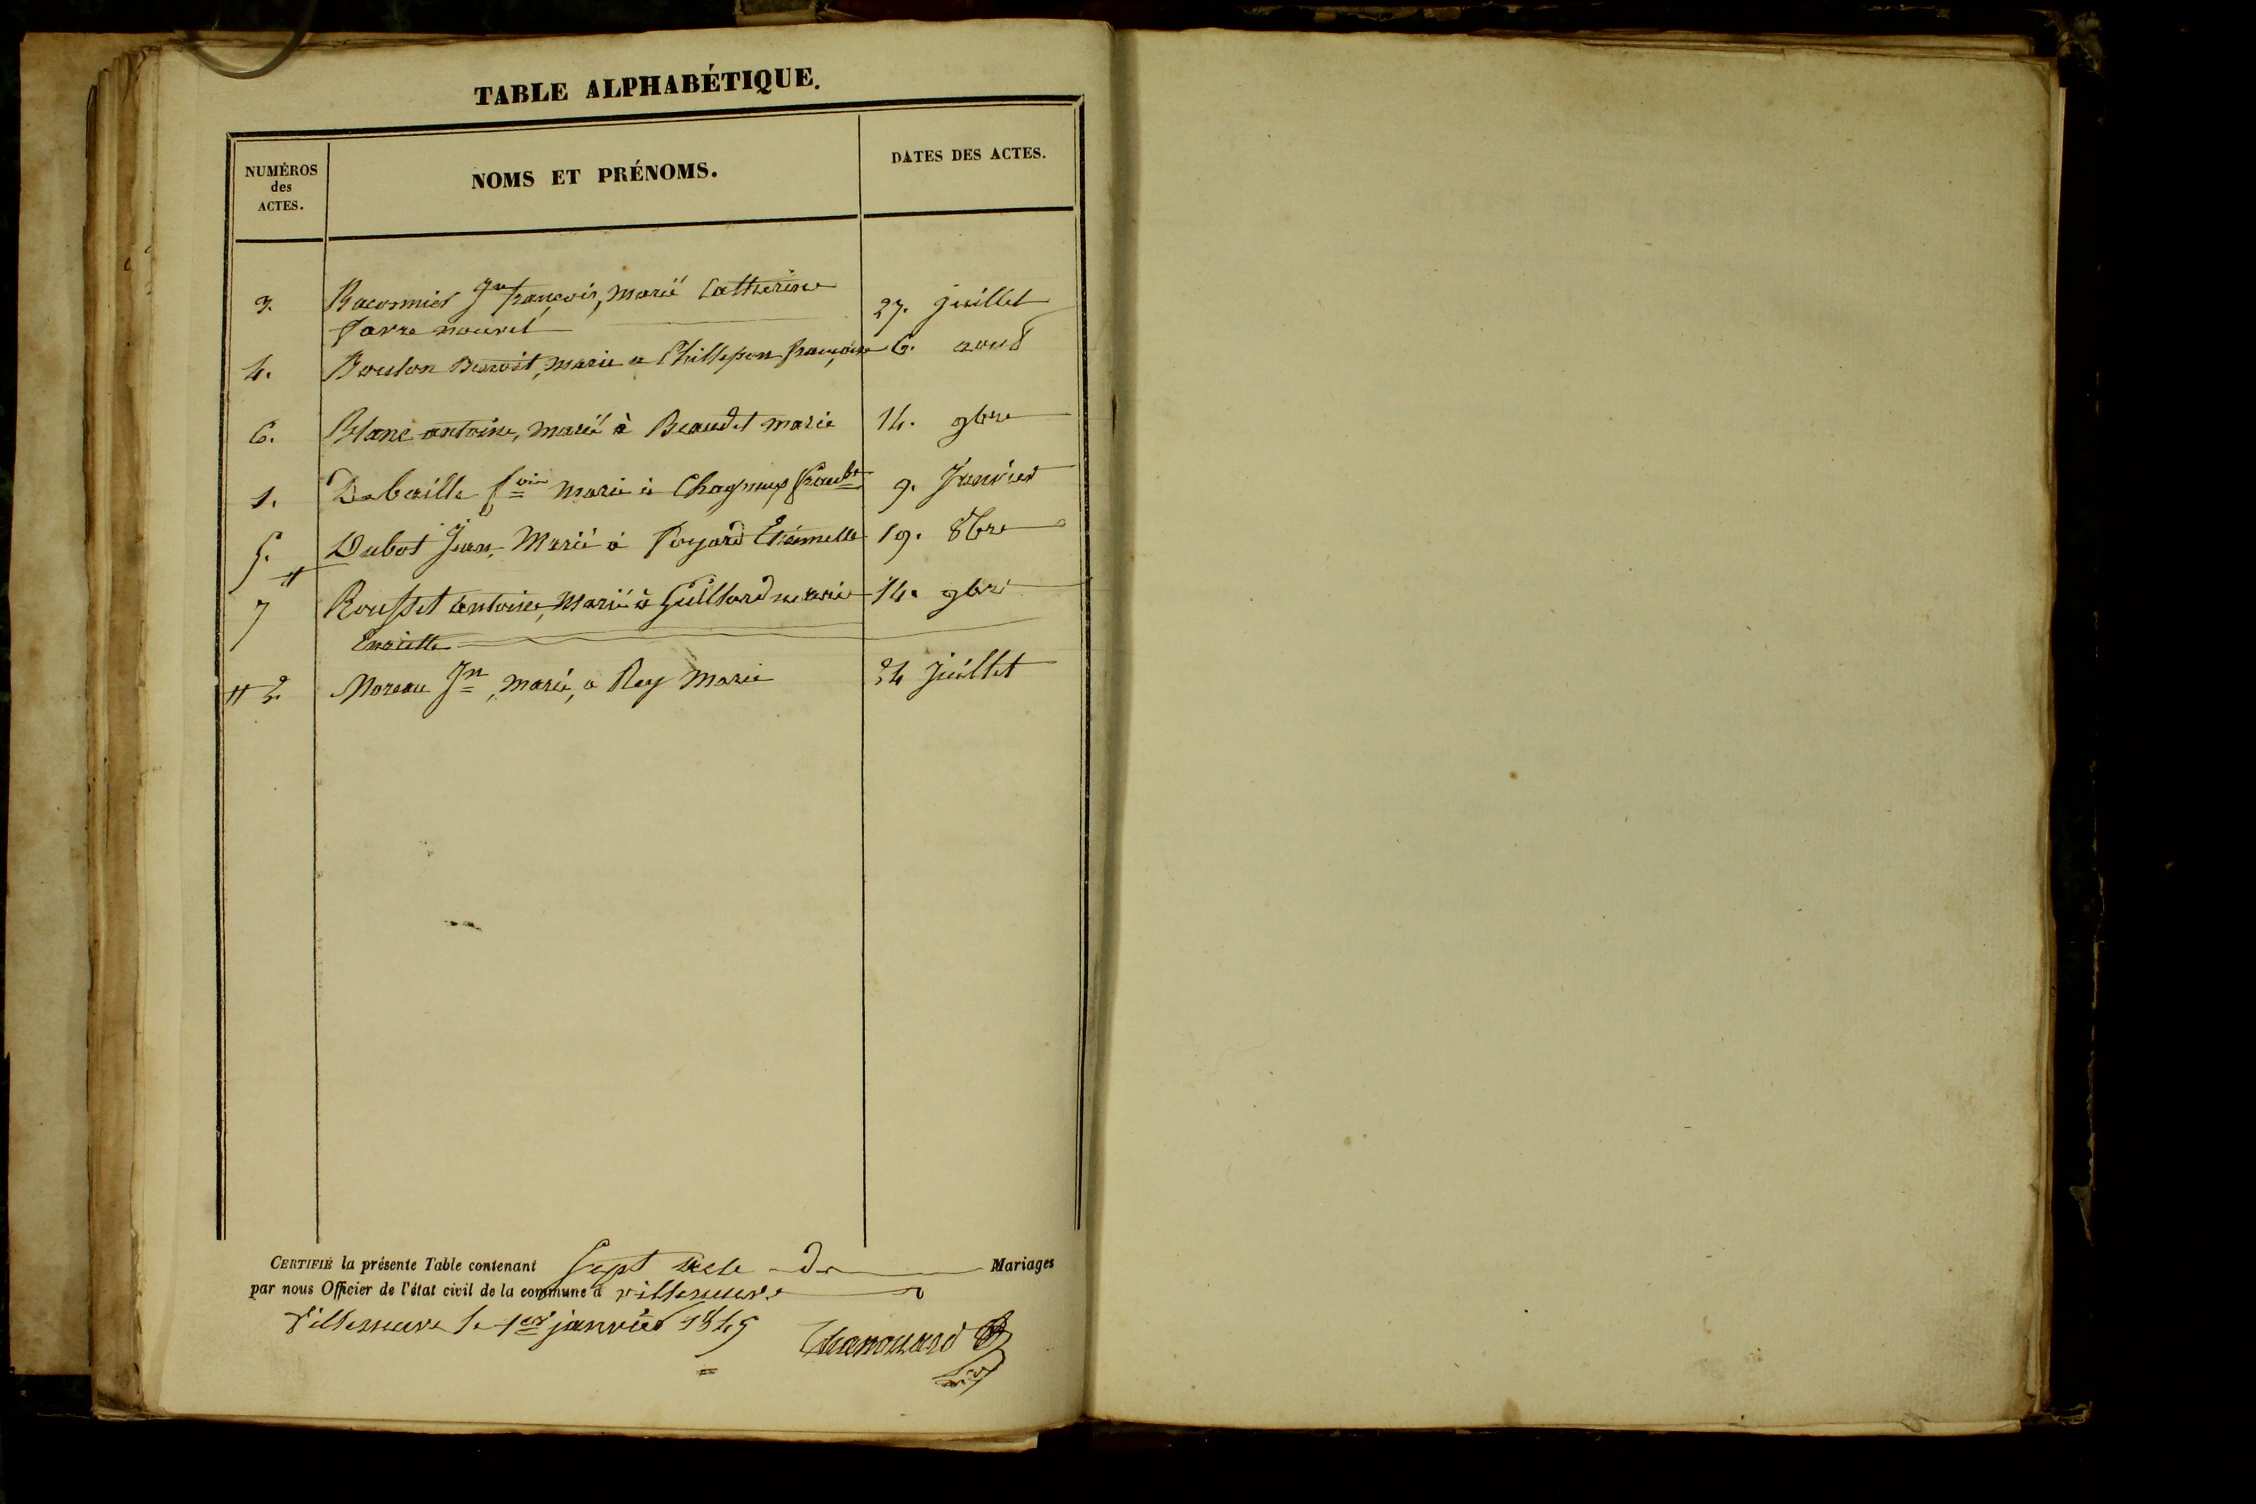 TABLE ALPHABÉTIQUE.
NUMÉROS
des
ACTES.
NOMS ET PRÉNOMS.
DATES DES ACTES.
3. Jn françois, marié Catherine 27. juillet
4. Boulon Benoit, marié a françoise 6. aout
6. Blanc antoine, marié à Beaudet marie 14. 9bre
1. Debaille marié à 9. Janvier
5. Dubot Jean, Marié à 19. 8bre
7 Rousset antoine, Marié à Guillard marie 14. 9bre
2. Moreau Jn, marié, a Rey Marie 24 Juillet
CERTIFIÉ la présente Table contenant Sept acte de Mariages
par nous Officier de l'état civil de la commune d villeneuve
Villeneuve le 1er janvier 1845